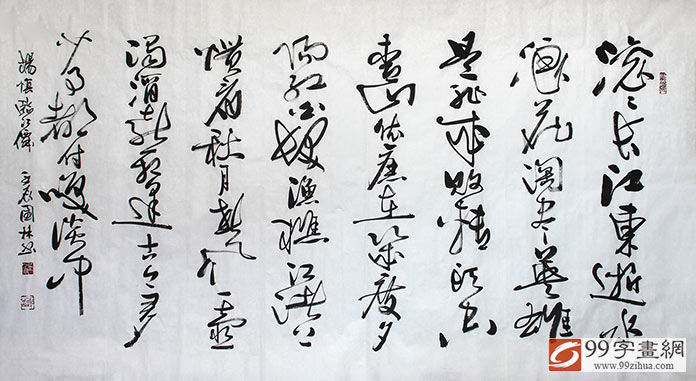 滚滚长江東逝水
浪花淘尽英雄
是非成败转头空
青山依舊在几度夕
阳红白发渔樵江渚上
惯看秋月春风一壶
浊酒喜相逢古今多
少事都付笑谈中
楊慎临江仙
99字畫網
www.99zihua.com